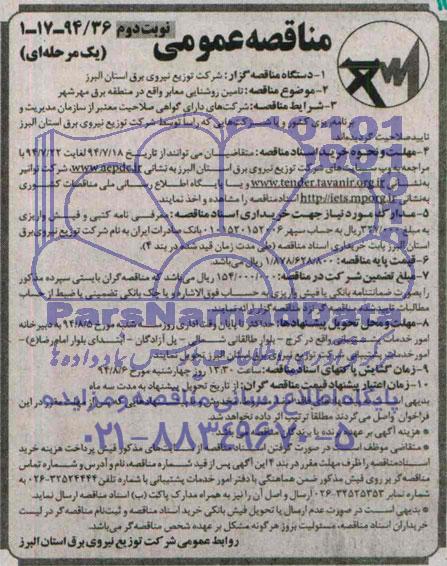 مناقصه عمومی
نوبت دوم ۹۴/۳۶-۱۷-۱
(یک مرحله‌ای)
۱- دستگاه مناقصه گزار: شرکت توزیع نیروی برق استان البرز
۲- موضوع مناقصه: تامین روشنایی معابر واقع در منطقه برق مهرشهر
۳- شرایط مناقصه: شرکت‌های دارای گواهی صلاحیت معتبر از سازمان مدیریت و
برنامه ریزی کشور و یا شرکت‌هایی که راسا توسط شرکت توزیع نیروی برق استان البرز
تایید صلاحیت گردیده‌اند
۴- مهلت و نحوه خرید اسناد مناقصه: متقاضیان می توانند از تاریخ ۹۴/۷/۱۸ لغایت ۹۴/۷/۲۲ با
مراجعه به وب سایت‌های شرکت توزیع نیروی برق استان البرز به نشانی www.aepdc.ir شرکت توانیر
به نشانی www.tender.tavanir.org.ir و یا پایگاه اطلاع رسانی ملی مناقصات کشوری
به نشانی http://iets.mporg.ir اسناد مناقصه را مشاهده و اخذ نمایند
۵- مدارک مورد نیاز جهت خریداری اسناد مناقصه: معرفی نامه کتبی و فیش واریزی
به مبلغ ریال به حساب سپهر ۰۱۰۱۵۲۰۱۵۲۰۰۶ بانک صادرات ایران به نام شرکت توزیع نیروی برق
استان البرز بابت خریداری اسناد مناقصه (طی مدت زمان قید شده در بند ۴).
۶- قیمت پایه مناقصه: ۱/۸۷۸/۶۲۸/۸۰۰ ریال می‌باشد.
۷- مبلغ تضمین شرکت در مناقصه: ۱۵۴/۰۰۰/۰۰۰ ریال می‌باشد که مناقصه گران بایستی سپرده مذکور
را بصورت ضمانتنامه بانکی یا فیش واریزی به حساب فوق الاشاره و یا چک بانکی تضمینی یا ضبط از حساب
مطالبات تایید شده مناقصه گر نزد مناقصه گزار ارائه نمایند
۸- مهلت و محل تحویل پیشنهادها: حداکثر تا پایان وقت اداری روز سه شنبه مورخ ۹۴/۸/۵ به دبیرخانه
امور خدمات پشتیبانی واقع در کرج - بلوار طالقانی شمالی - پل آزادگان - ابتدای بلوار امام رضا(ع) -
امور خدمات پشتیبانی شرکت توزیع نیروی برق استان البرز تحویل نمایند.
۹- زمان گشایش پاکتهای اسناد مناقصه: ساعت ۱۳:۳۰ روز چهارشنبه مورخ ۹۴/۸/۶
۱۰- زمان اعتبار پیشنهاد قیمت مناقصه گران: از تاریخ تحویل پیشنهاد به مدت سه ماه
بدیهی است به پیشنهادهای پس از مهلت مقرر در این
فراخوان واصل می‌گردند مطلقا ترتیب اثر داده نخواهد شد.
* هزینه آگهی بر عهده برنده یا برندگان مناقصه می‌باشد.
* متقاضی موظف است در صورت گرفتن اسناد مناقصه از سایت‌های مذکور فیش پرداخت هزینه خرید
اسناد مناقصه را ظرف مهلت مقرر در بند ۴ این آگهی پس از قید شماره مناقصه، نام و آدرس و شماره تماس
مناقصه گر بر روی فیش مذکور ضمن هماهنگی با دفتر امور خدمات پشتیبانی با شماره تلفن ۳۲۵۲۴۴۴۴-۰۲۶ به
نمابر شماره ۳۲۵۲۵۳۵۳-۰۲۶ ارسال و اصل آن را نیز به همراه مدارک پاکت (ب) اسناد مناقصه ارسال نماید.
* بدیهی است در صورت عدم ارسال یا تحویل فیش بانکی خرید اسناد مناقصه و ثبت نام مناقصه گر در لیست
خریداران اسناد مناقصه، مسئولیت بروز هر گونه مشکل بر عهده شخص مناقصه گر می‌باشد.
روابط عمومی شرکت توزیع نیروی برق استان البرز
ParsNamadData
پایگاه اطلاع رسانی مناقصه و مزایده
۰۲۱-۸۸۳۴۹۶۷۰-۵